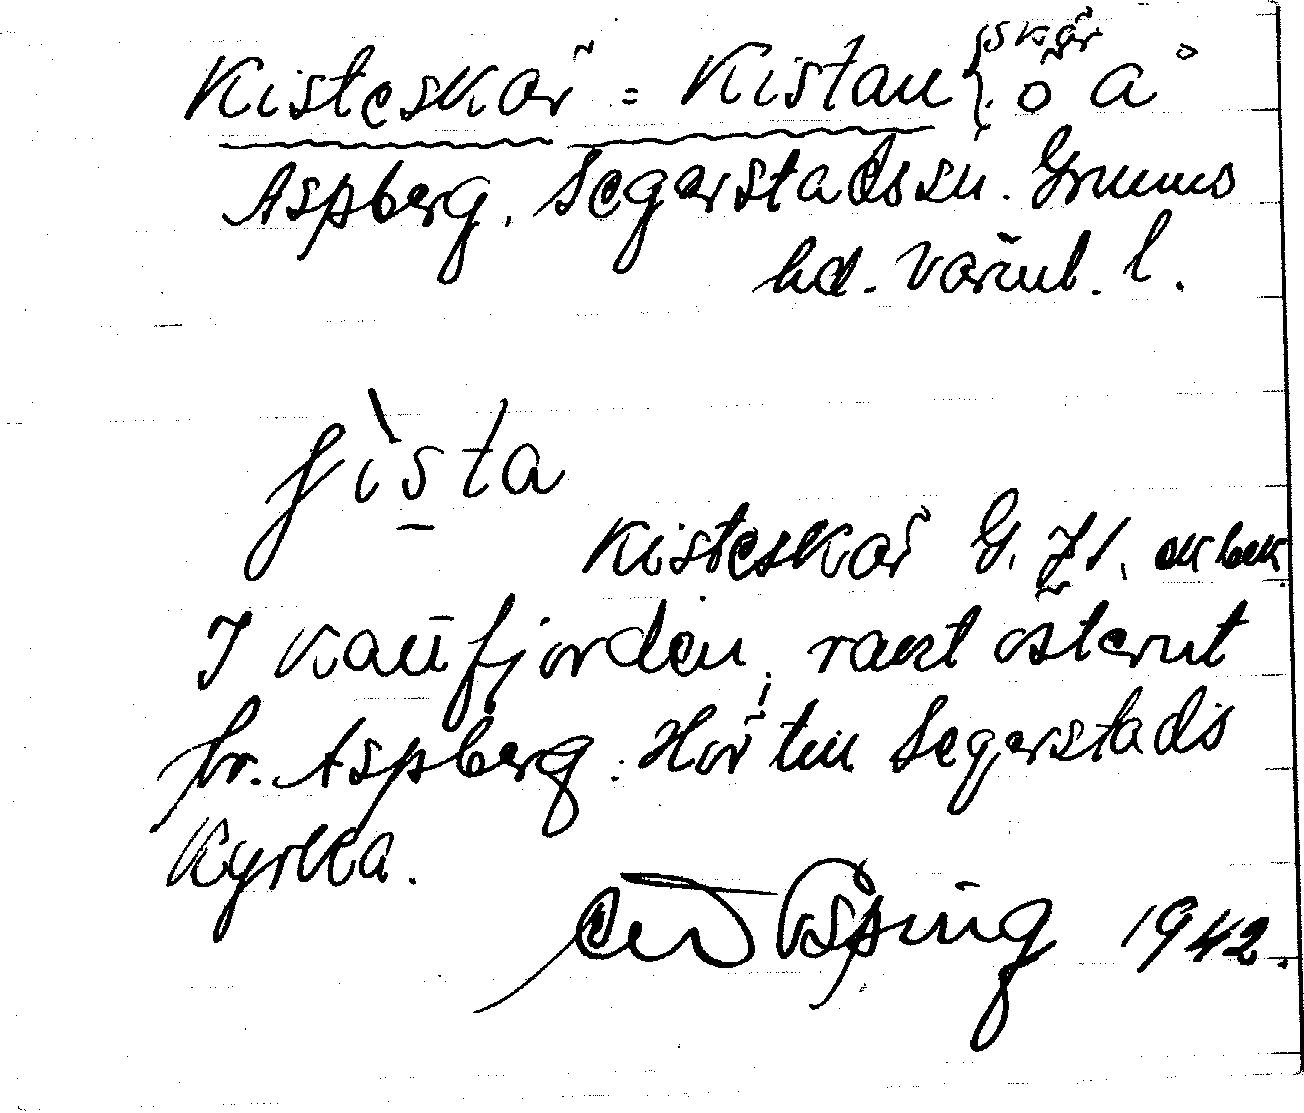 Kisteskär = Kistan { skär
ö å
Aspberg. Segerstads sn. Grums
hd. Värml. l.
Kisteskär G. Kl. ek. bek.
I Kattfjorden, rakt österut
fr. Aspberg. Hör till Segerstads
Kyrka.
1942.